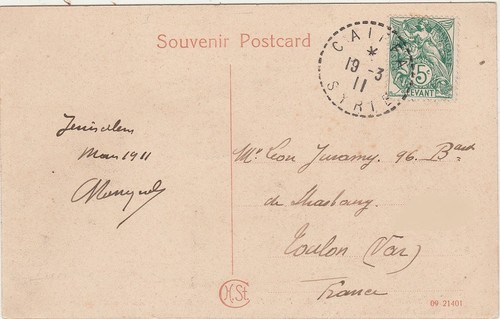 Souvenir Postcard
CAIFFA
*
19 -3
11
SYRIE
5c
LEVANT
Jérusalem
Mars 1911
Mr Léon Juramy. 96. Bard
de Strasbourg
Toulon (Var)
France
09 21401